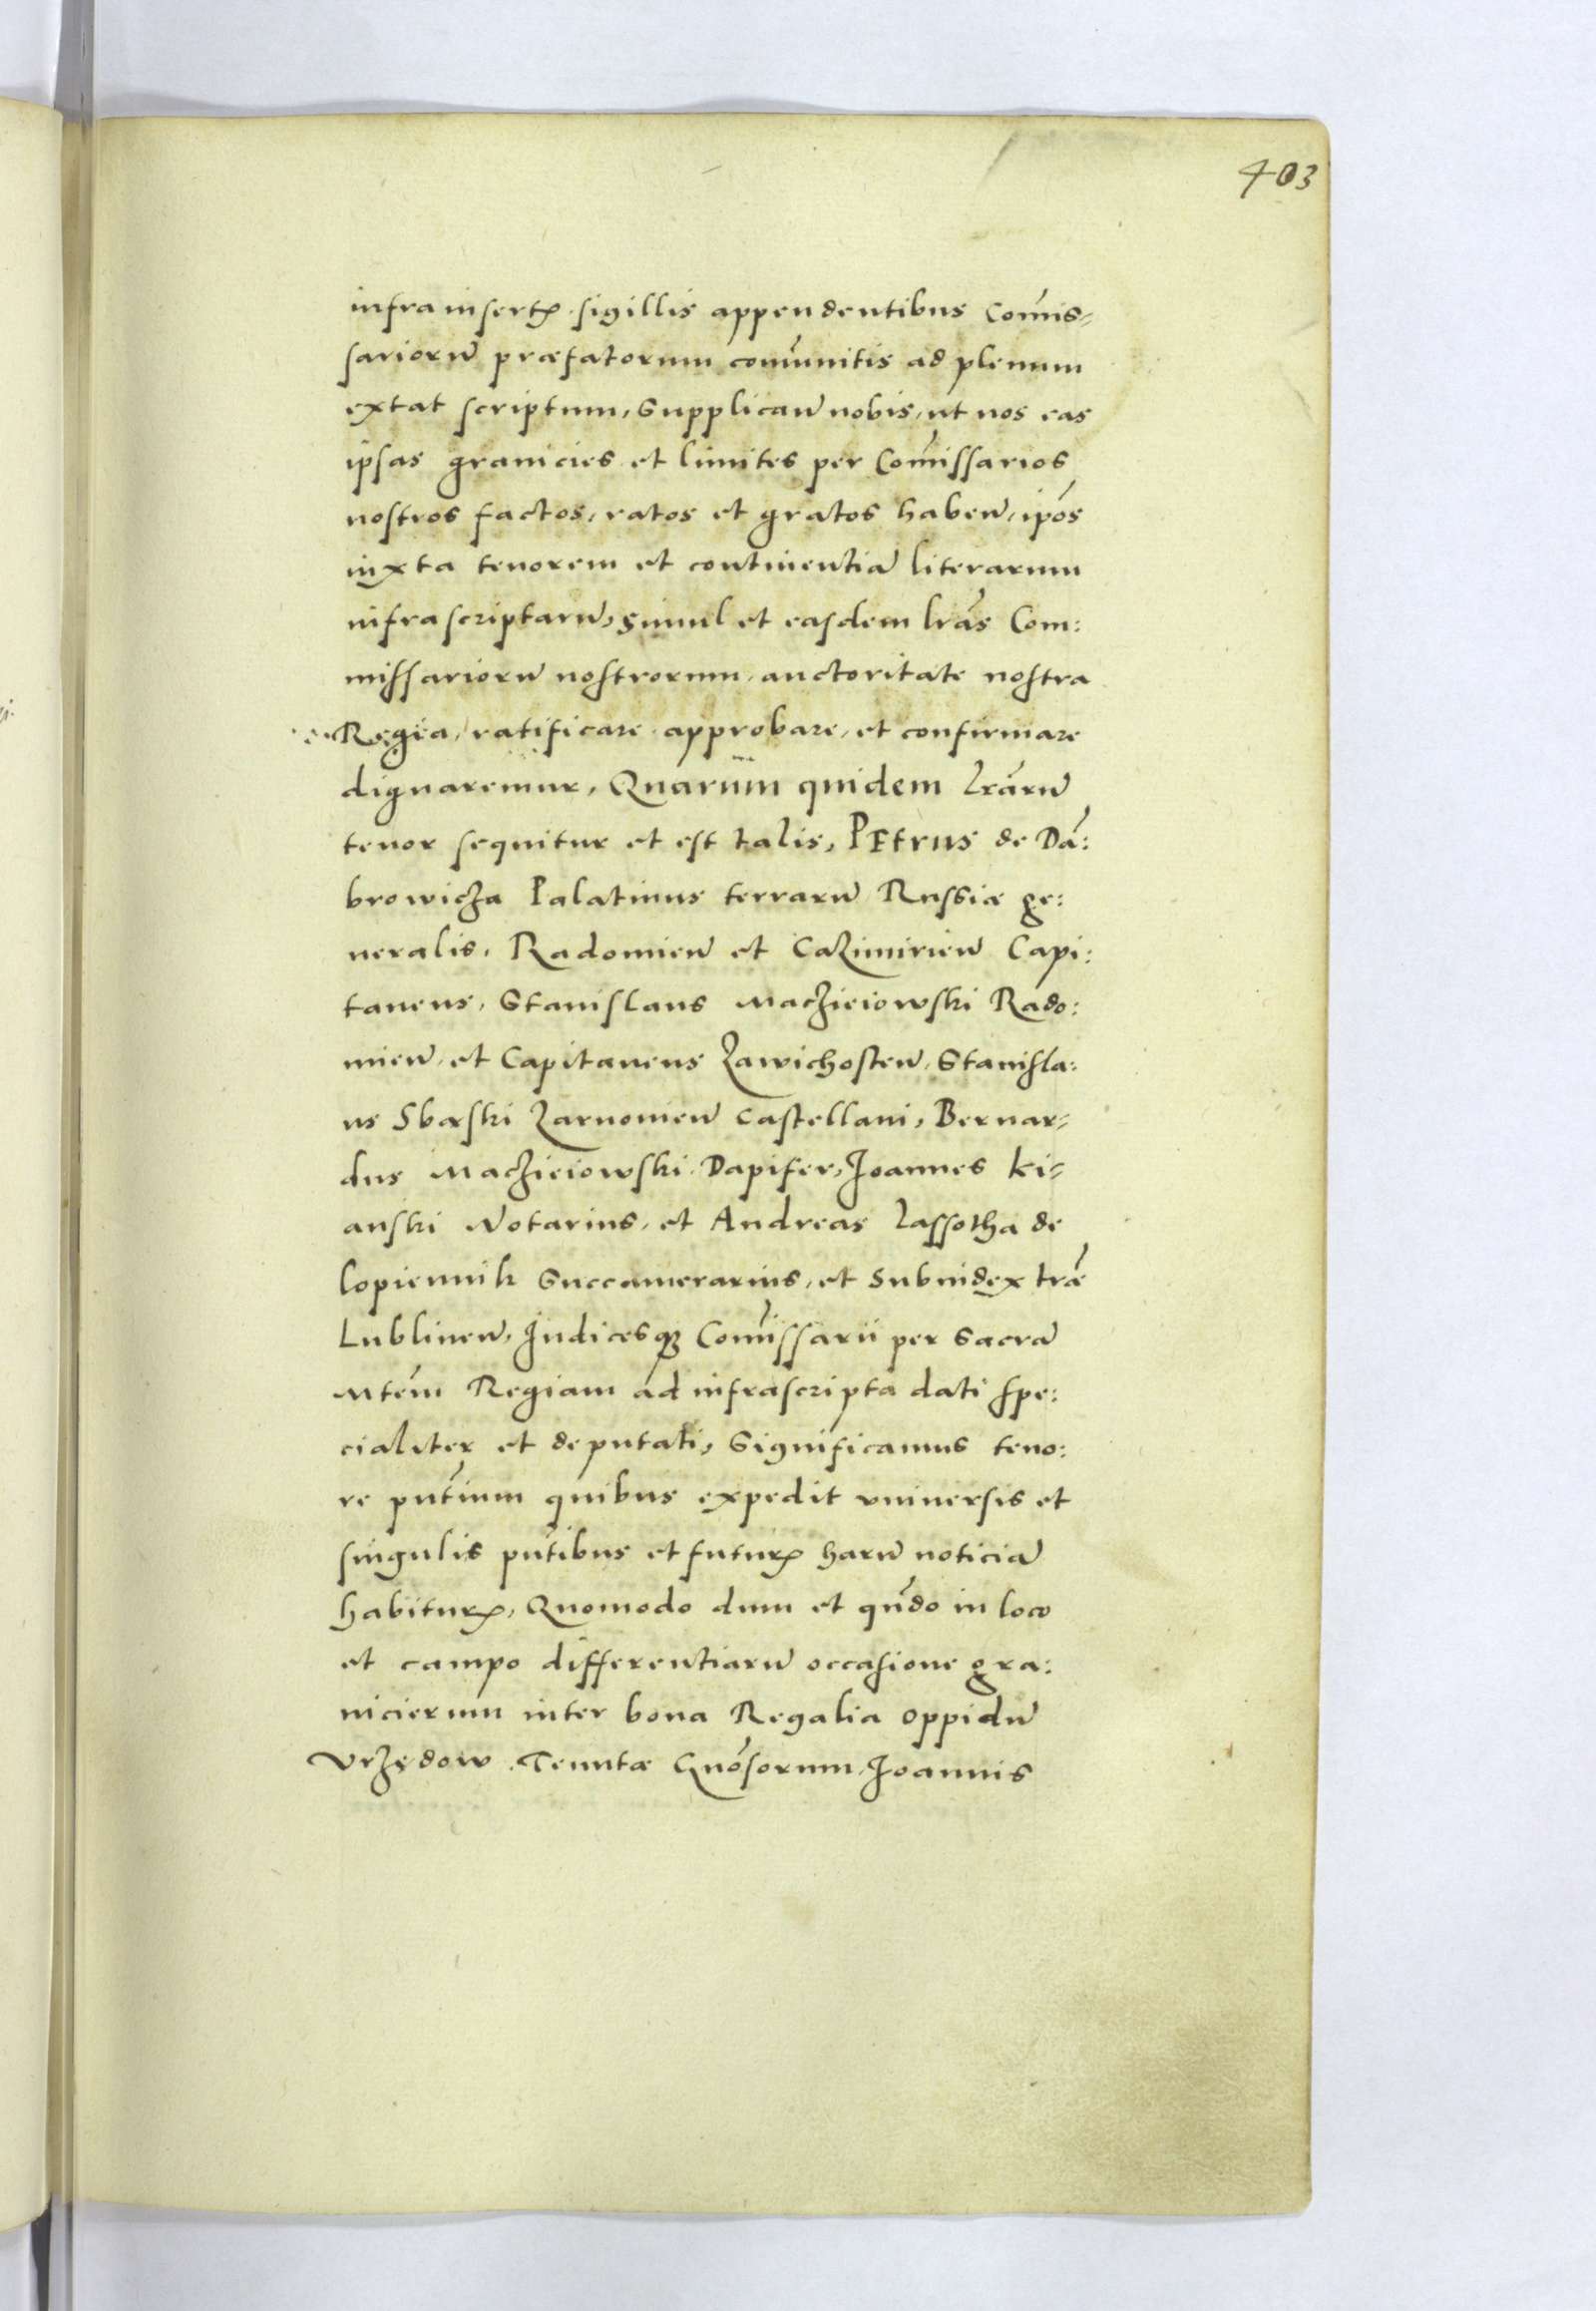 403
infra insertꝭ sigillis appendentibus Com̃is⸗
sariorũ præfatorum com̃unitis ad plenum
extat scriptum, Supplicañ nobis, ut nos eas
ipsas granicies et limites per Com̃issarios
nostros factos, ratos et gratos habeñ, ip̃os
iuxta tenorem et continentiã literarum
infrascriptarũ, simul et easdem lr̃as Com:
missariorũ nostrorum, auctoritate nostra
Regia, ratificare approbare, et confirmare
dignaremur, Quarum quidem Lr̃arũ
tenor sequitur et est talis, PEtrus de Dã:
browicza Palatinus terrarũ Russiæ ge:
neralis, Radomieñ et Cazimirieñ Capi:
taneus, Stanislaus Maczieiowski Rado:
mieñ, et Capitaneus Zawichosteñ, Stanisla:
us Sbąski Zarnowieñ Castellani, Bernar⸗
dus Maczieiowski Dapifer, Joannes ki⸗
anski Notarius, et Andreas Lassotha de
Lopiennik Succamerarius, et Subiudex tr̃æ
Lublineñ, Judicesqꝫ Com̃issarii per Sacrã
Mtem̃ Regiam ad infrascripta dati spe:
cialiter et deputati, Significamus teno:
re pn̄tium quibus expedit vniuersis et
singulis pn̄tibus et futurꝭ harũ noticiã
habiturꝭ, Quomodo dum et qñdo in loco
et campo differentiarũ occasione gra:
nicierum inter bona Regalia oppidũ
Vrzędow Tenutæ Gnõsorum Joannis